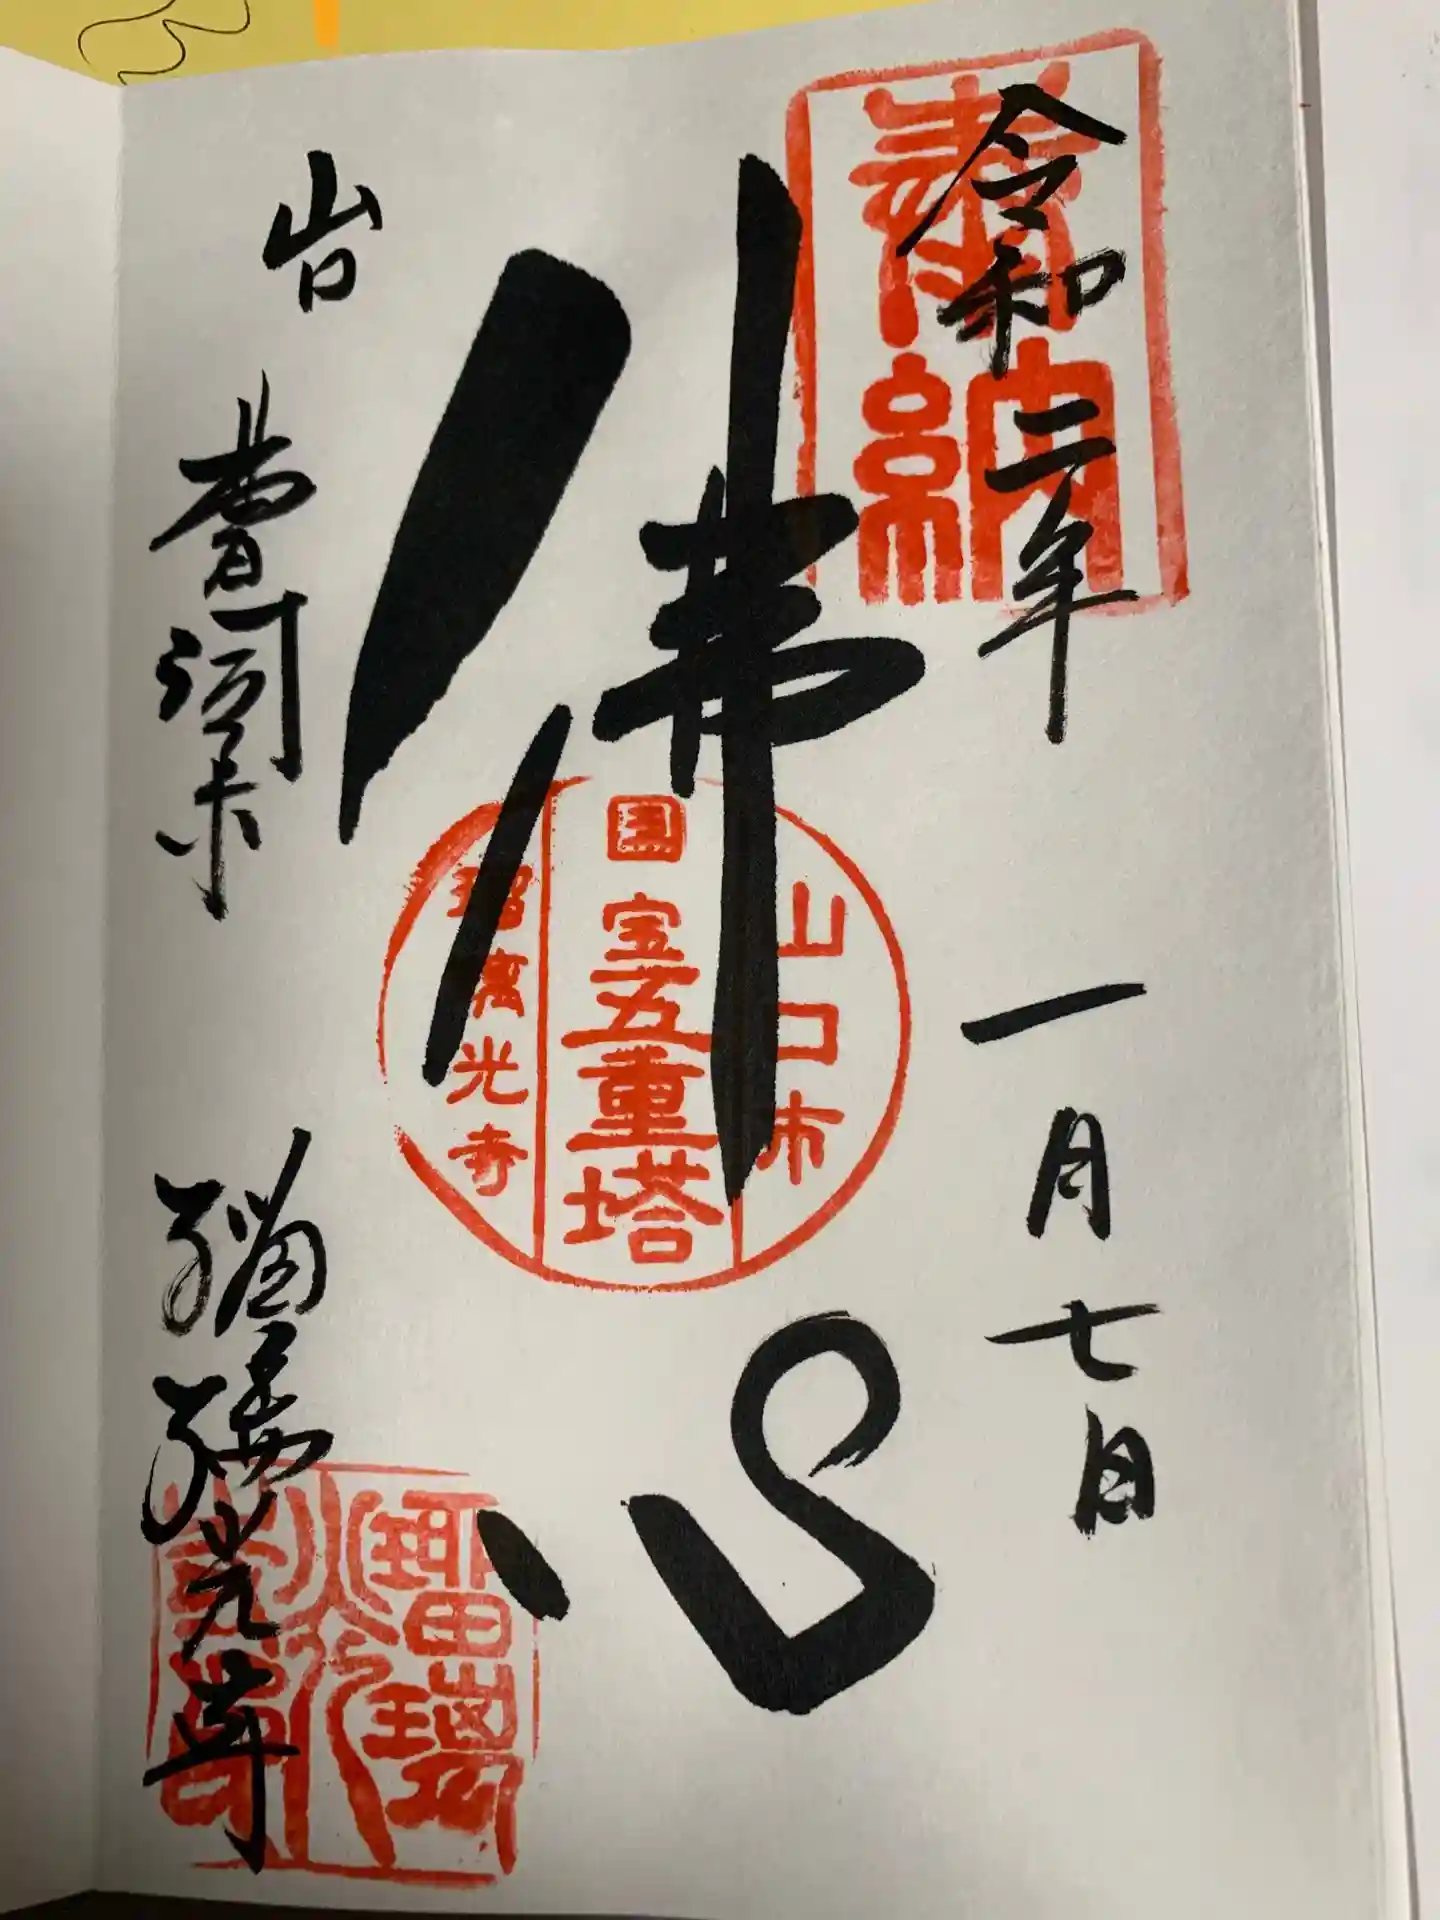 奉納
令和二年 一月七日
佛心
山口市
國宝五重塔
瑠璃光寺
山口 曹洞宗 瑠璃光寺